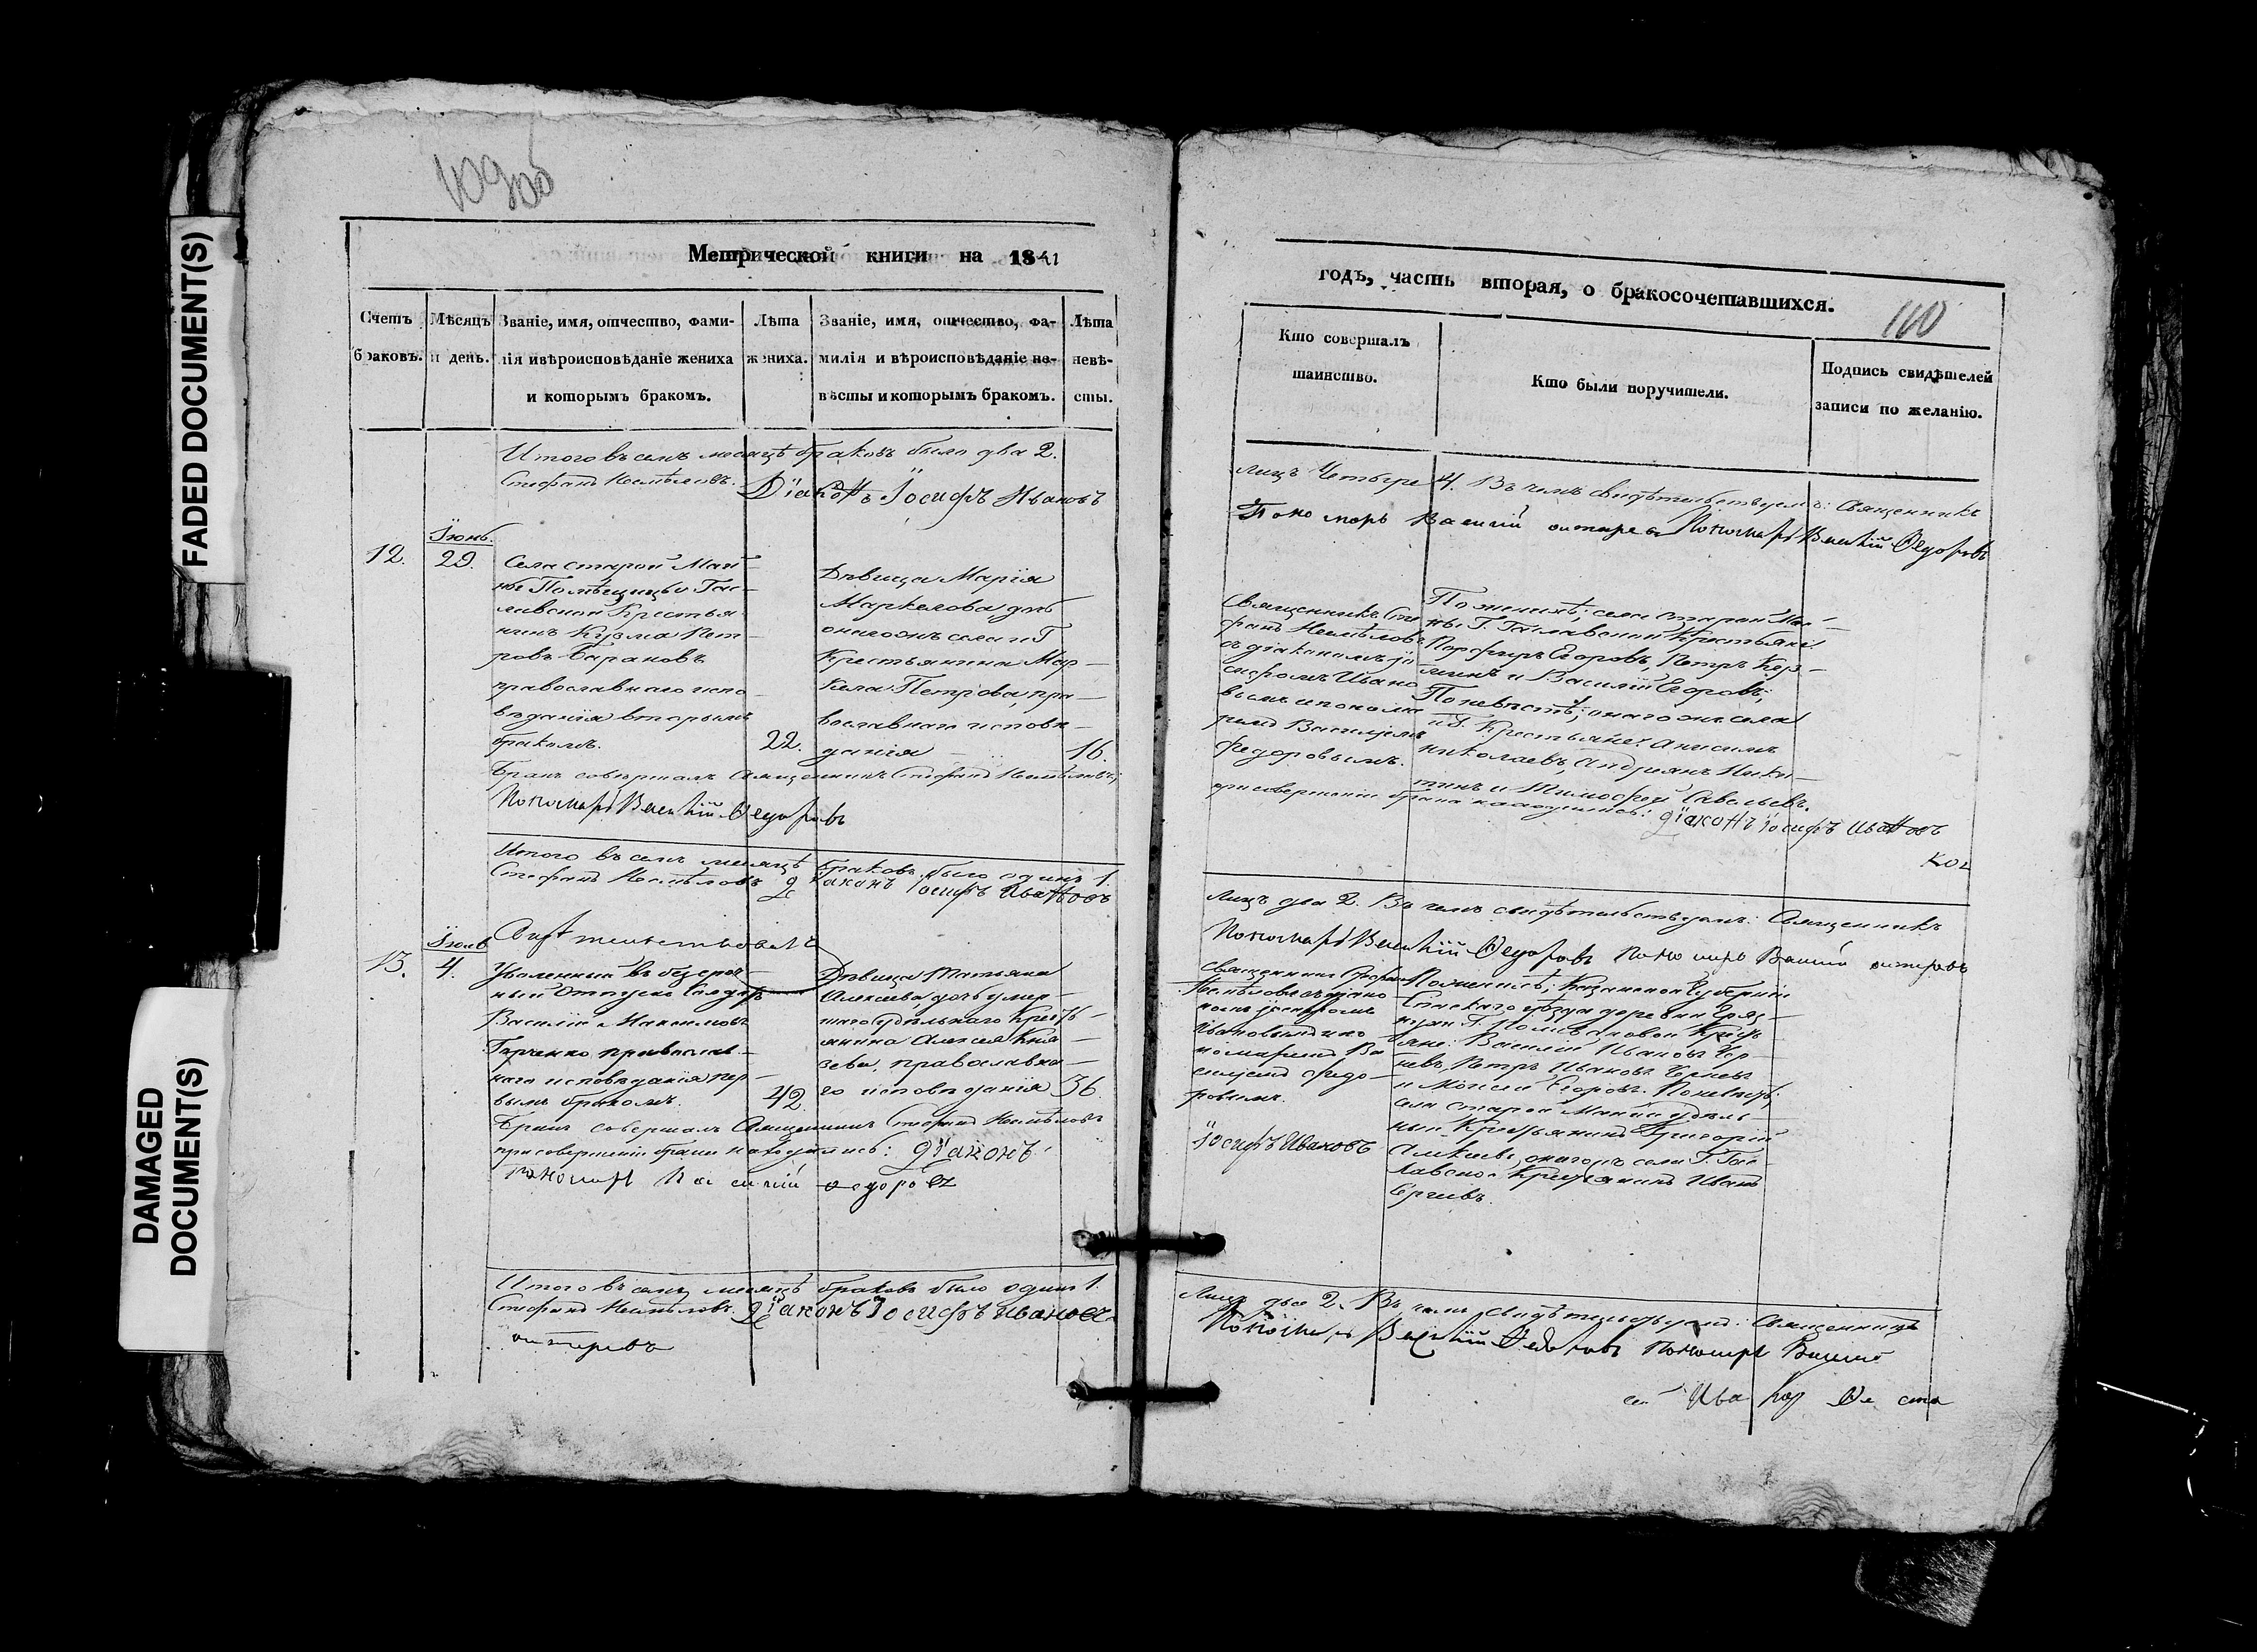 FADED DOCUMENT(S)
DAMAGED
DOCUMENT(S)
109об
Метрической книги на 1841
Счетъ
браковъ.
Мѣсяцъ
и день.
Званіе, имя, отчество, фами-
лія и вѣроисповѣданіе жениха
и которымъ бракомъ.
Лѣта
жениха.
Званіе, имя, отчество, фа-
милія и вѣроисповѣданіе не-
вѣсты и которымъ бракомъ.
Лѣта
невѣ-
сты.
Итого въ семъ месяцѣ браковъ было два 2.
Стефанъ Діаконъ Іосифъ Ивановъ
Іюнь.
12.
29.
Села старой Май-
ны Помѣщицы
Крестья
нинъ Кузма Пет-
ровъ Барановъ
православнаго испо-
веданія вторымъ
бракомъ.
22.
Дѣвица Марія
Маркелова дочь
онагожъ села и Г
Крестьянина Мар-
кела Петрова, пра-
вославнаго испове-
данія
16.
Бракъ совершалъ Священникъ Стефанъ
Пономарь Василій Ѳедоровъ
Итого въ семъ месяцѣ браковъ было одинъ 1.
Стефанъ діаконъ Іосифъ Ивановъ
Іюль
13.
4.
Уволенный въ безсроч-
ный отпускъ
Василій Максимовъ
православ-
наго исповеданія пер-
вымъ бракомъ.
42.
Дѣвица Татьяна
Алексеева дочь умер-
шаго удѣльнаго Кресть-
янина Алексея Кня-
зева, православна-
го исповеданія
36.
Бракъ совершалъ Священникъ Стефанъ
при совершеніи брака находились: діаконъ
Пономарь Василій Ѳедоровъ
Итого въ семъ месяцѣ браковъ было одинъ 1.
Стефанъ Діаконъ Іосифъ Ивановъ
годъ, часть вторая, о бракосочетавшихся.
110
Кто совершалъ
таинство.
Кто были поручители.
Подпись свидѣтелей
записи по желанію.
лицъ Четыре 4. Въ чемъ свидѣтельствуемъ: Священникъ
Пономарь Василій Пономарь Василій Ѳедоровъ
Священникъ Сте-
фанъ
съ діакономъ Іо-
сифомъ Ивано-
вымъ и понома-
ремъ Василіемъ
Федоровымъ.
По женихѣ; села старой Май-
ны Г. Крестьяне:
Порфиръ Егоровъ, Петръ Куз-
минъ и Василій Егоровъ;
По невѣстѣ; онагожъ села
и Г. Крестьяне: Анисимъ
Николаевъ, Андріянъ Ники-
тинъ и Тимофей Савельевъ.
при совершеніи брака находились: діаконъ Іосифъ Ивановъ
Лицъ два 2. Въ чемъ свидѣтельствуемъ: Священникъ
Пономарь Василій Ѳедоровъ Пономарь Василій
Священникъ Стефанъ
съ діако-
номъ Іосифомъ
Ивановымъ и по-
номаремъ Ва-
силіемъ Федо-
ровымъ.
Іосифъ Ивановъ
По женихѣ; Казанской Губерніи
Спаскаго уѣзда деревни
Кресть-
яне: Василій Ивановъ
Петръ Ивановъ
и Моисей Егоровъ. По невѣстѣ;
села старой Майны удѣль-
ный Крестьянинъ Григорій
Алексеевъ, онагожъ села Г.
Крестьянинъ Иванъ
Сергеевъ.
Лицъ два 2. Въ чемъ свидѣтельствуемъ: Священникъ
Пономарь Василій Ѳедоровъ Пономарь Василій